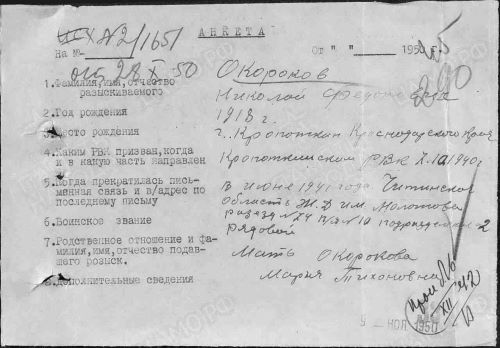 исх №2/1651
АНКЕТА
На №
от 28 X 50
От " " 195 г.
1.Фамилия,имя,отчество разыскиваемого
Окороков
Николай Федотович
2.Год рождения
1918 г.
3.Место рождения
г. Кропоткин Краснодарского края
4.Каким РВК призван,когда и в какую часть направлен
Кропоткинским РВК X.1940г
5.Когда прекратилась письменная связь и в/адрес по последнему письму
В июне 1941 года Читинская
область Ж.Д им. Молотова
разъезд №74 п/я №10 подразделен 2
6.Воинское звание
рядовой
7.Родственное отношение и фамилия,имя,отчество подавшего розыск.
Мать Окорокова
Мария Тихоновна
8.Дополнительные сведения
9 НОЯ 1950